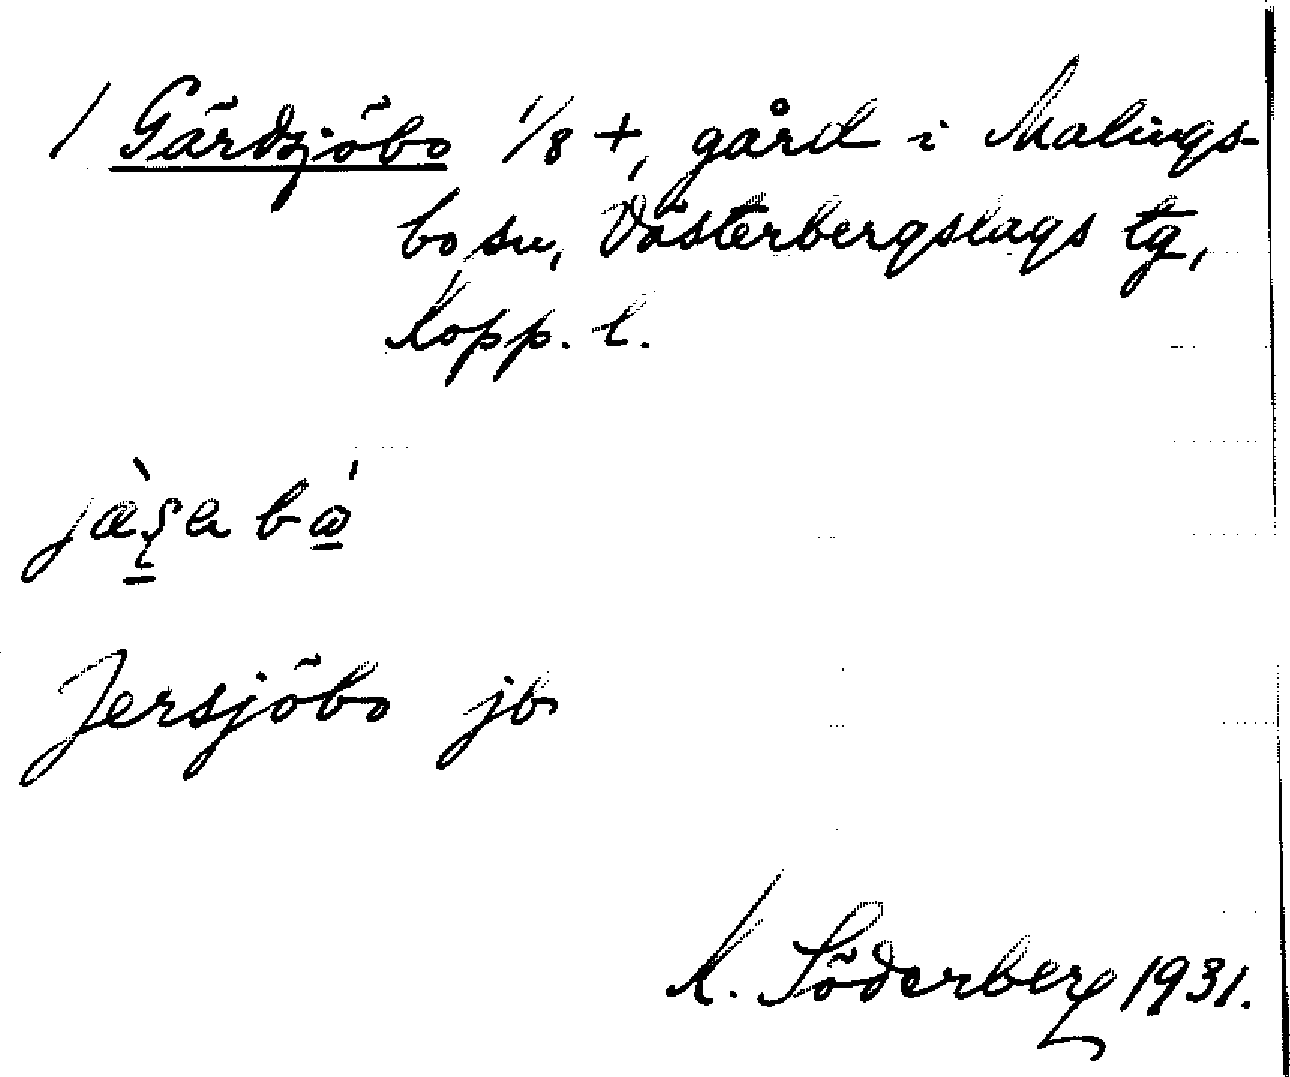 / Gärdsjöbo 1/8 +, gård i Malings-
bo sn, Västerbergslags tg,
Kopp. l.
jæ̀ʂa bó
Jersjöbo jb
K. Söderberg 1931.